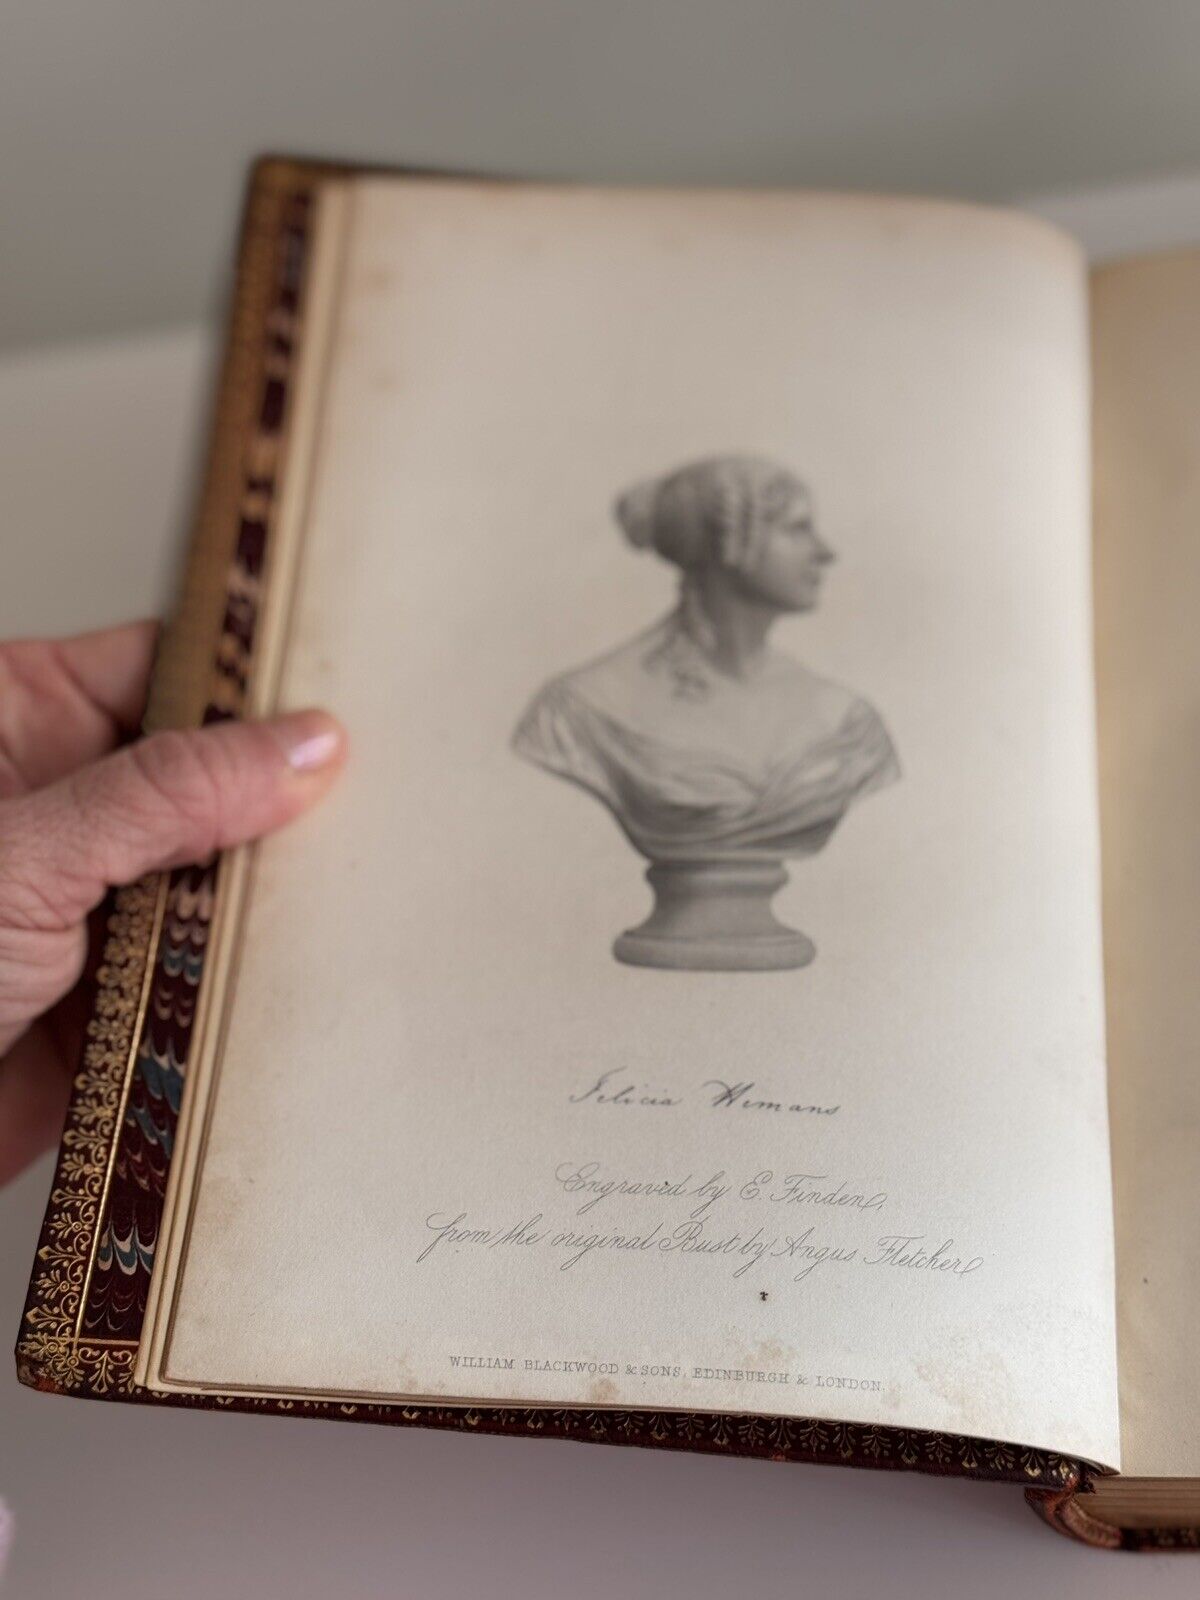 Felicia Hemans
Engraved by E. Finden,
from the original Bust by Angus Fletcher
WILLIAM BLACKWOOD & SONS, EDINBURGH & LONDON.